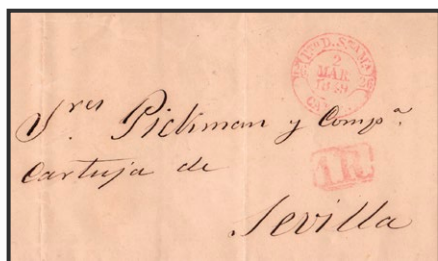 2
MAR
1849
Sres Pickman y Compa.
Cartuja de
1R.
Sevilla